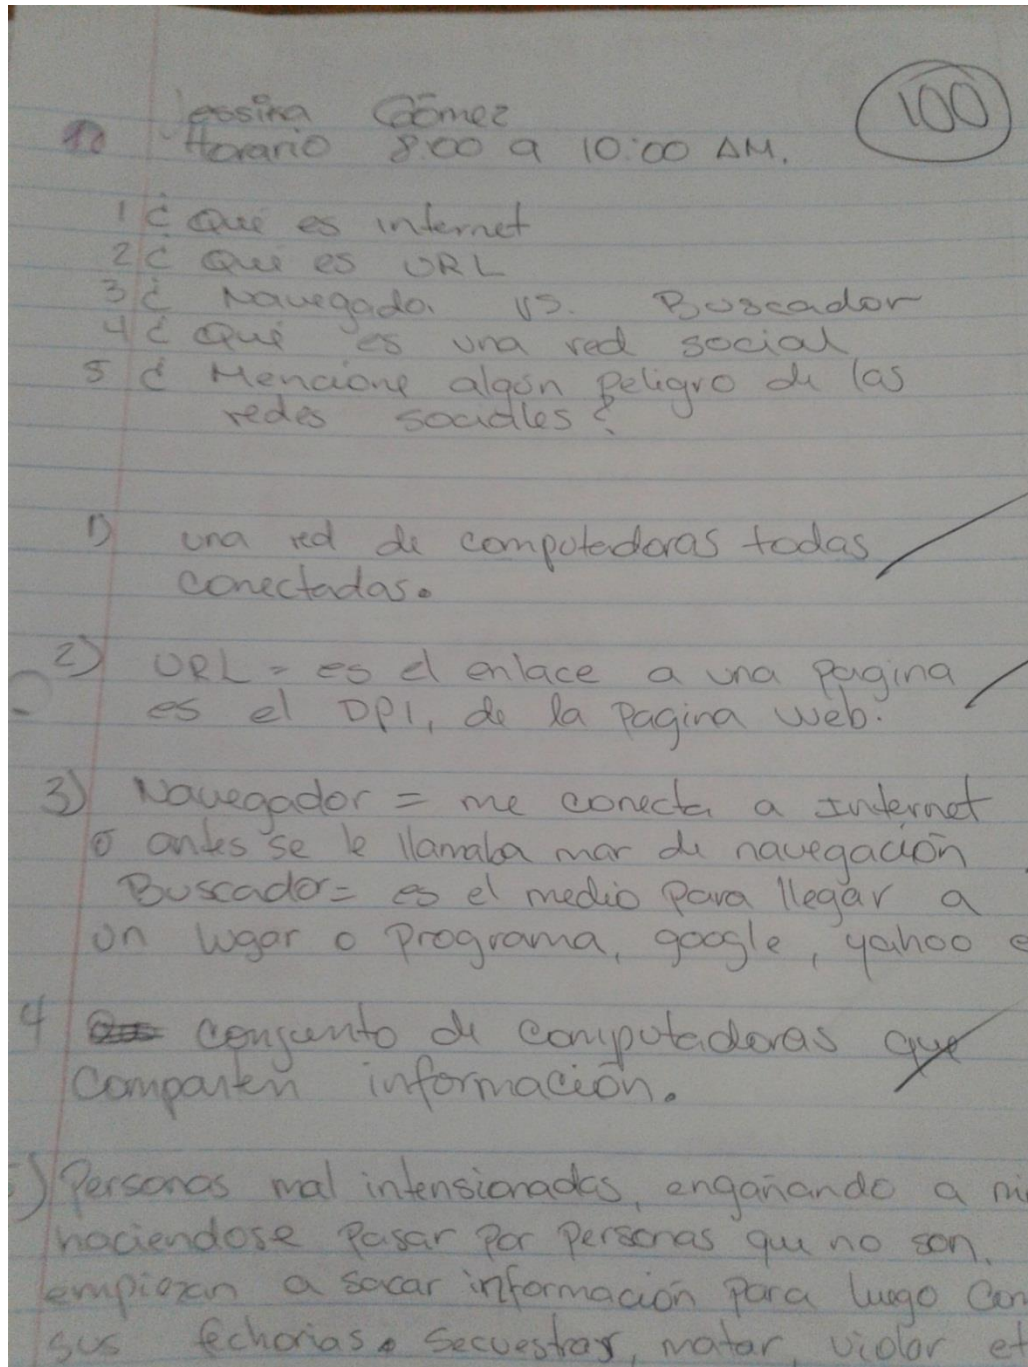 Jessica Gómez
100
Horario 8:00 a 10:00 AM.
1 ¿ Qué es internet
2 ¿ Qué es URL
3 ¿ Navegador vs. Buscador
4 ¿ Qué es una red social
5 ¿ Mencione algún peligro de las
redes sociales?
1) una red de computadoras todas
conectadas.
2) URL = es el enlace a una pagina
es el DPI, de la pagina web.
3) Navegador = me conecta a Internet
o antes se le llamaba mar de navegación
Buscador = es el medio para llegar a
un lugar o programa, google, yahoo e
4 conjunto de computadoras que
comparten información.
5) Personas mal intensionadas, engañando a ni
haciendose pasar por personas que no son.
empiezan a sacar información para luego con
sus fechorias. Secuestrar, matar, violar et